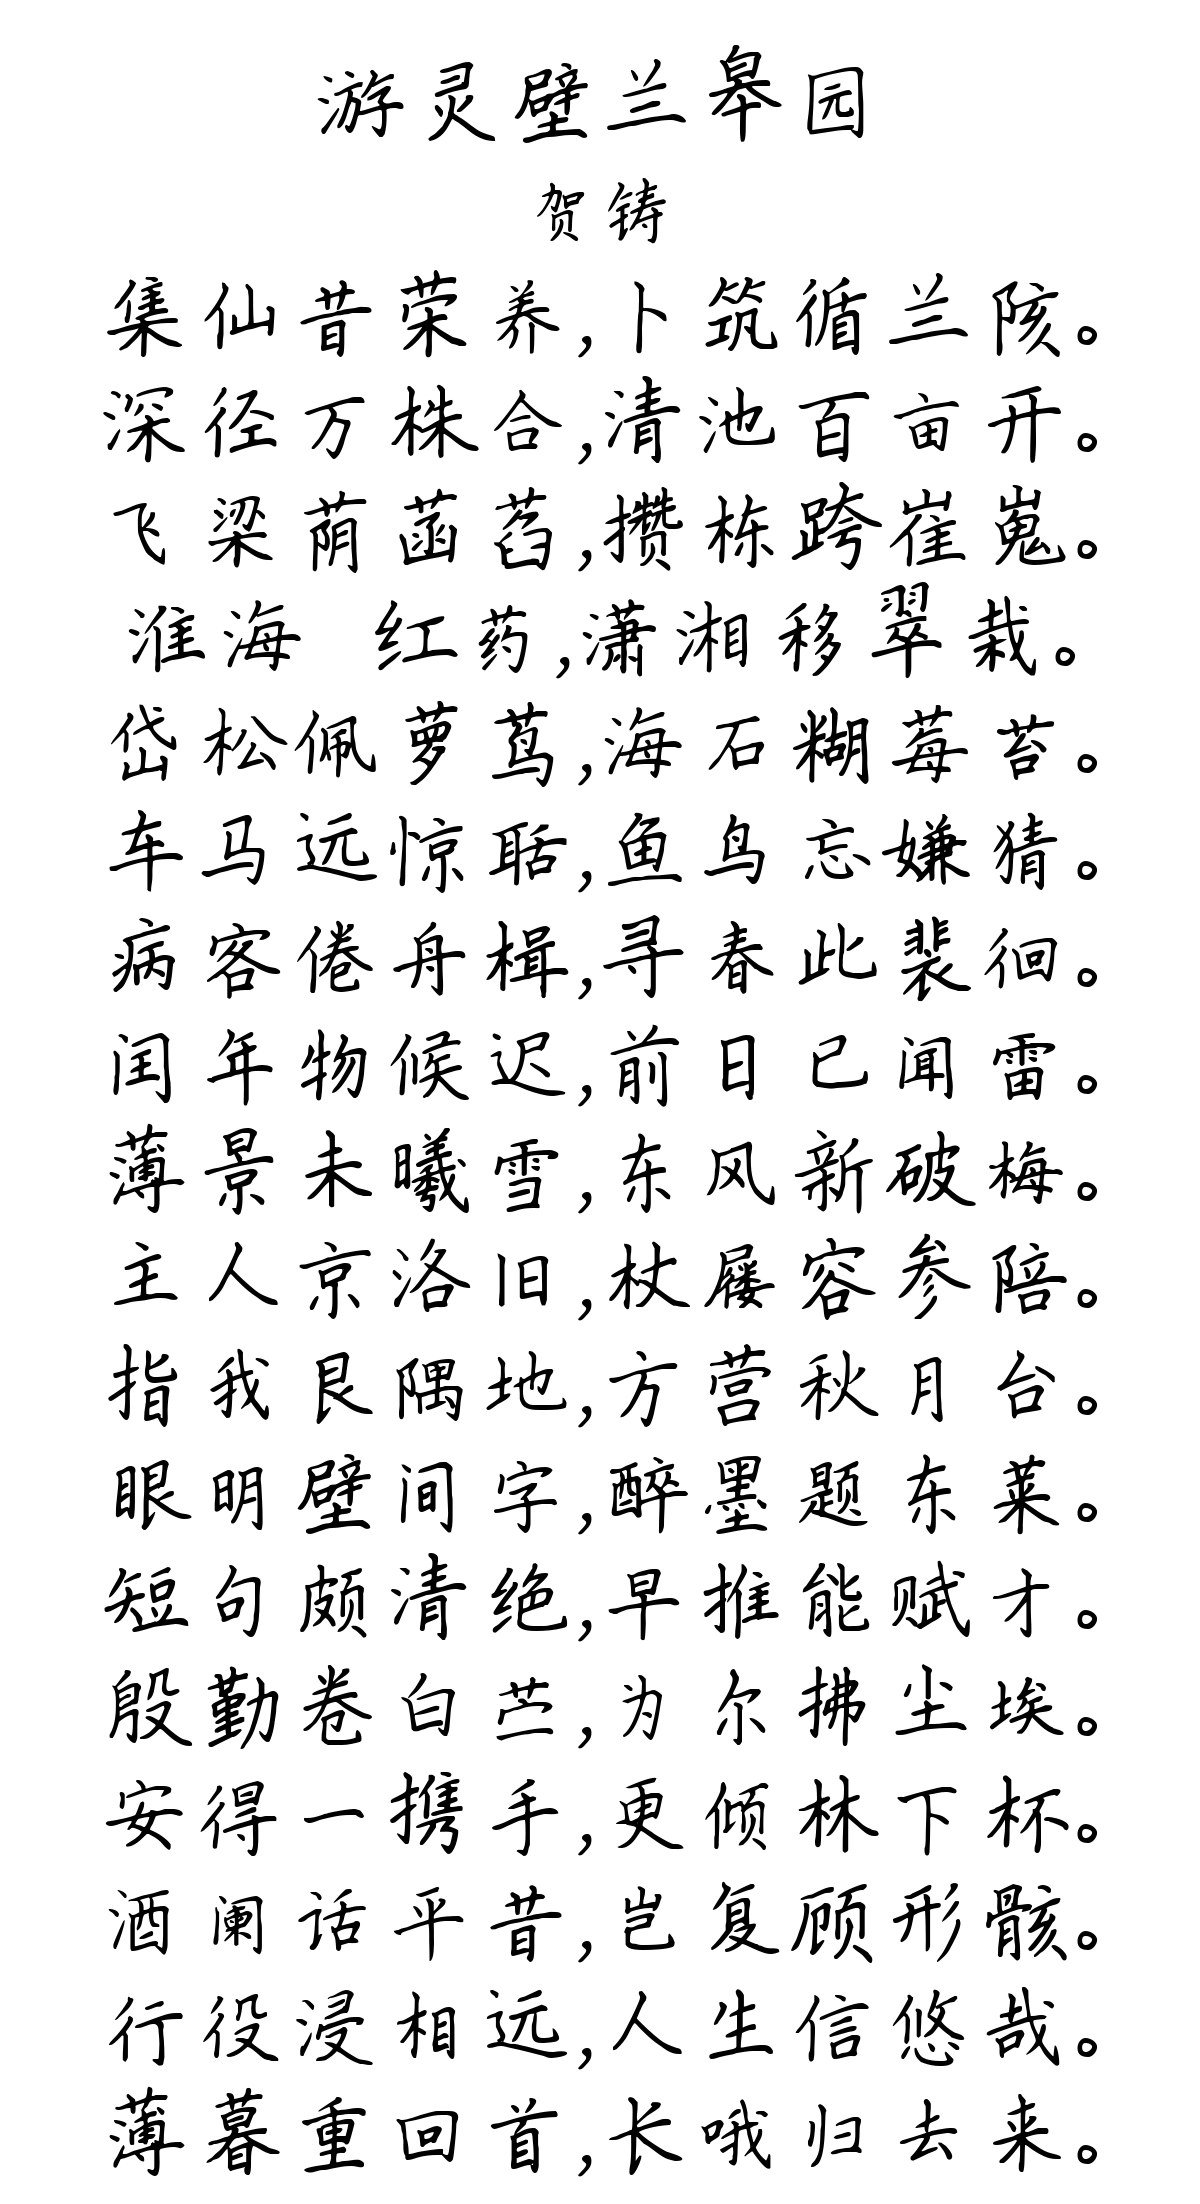 游灵壁兰皋园
贺铸
集仙昔荣养,卜筑循兰陔。
深径万株合,清池百亩开。
飞梁荫菡萏,攒栋跨崔嵬。
淮海 红药,潇湘移翠栽。
岱松佩萝茑,海石糊莓苔。
车马远惊聒,鱼鸟忘嫌猜。
病客倦舟楫,寻春此裴徊。
闰年物候迟,前日已闻雷。
薄景未曦雪,东风新破梅。
主人京洛旧,杖屦容参陪。
指我艮隅地,方营秋月台。
眼明壁间字,醉墨题东莱。
短句颇清绝,早推能赋才。
殷勤卷白苎,为尔拂尘埃。
安得一携手,更倾林下杯。
酒阑话平昔,岂复顾形骸。
行役浸相远,人生信悠哉。
薄暮重回首,长哦归去来。